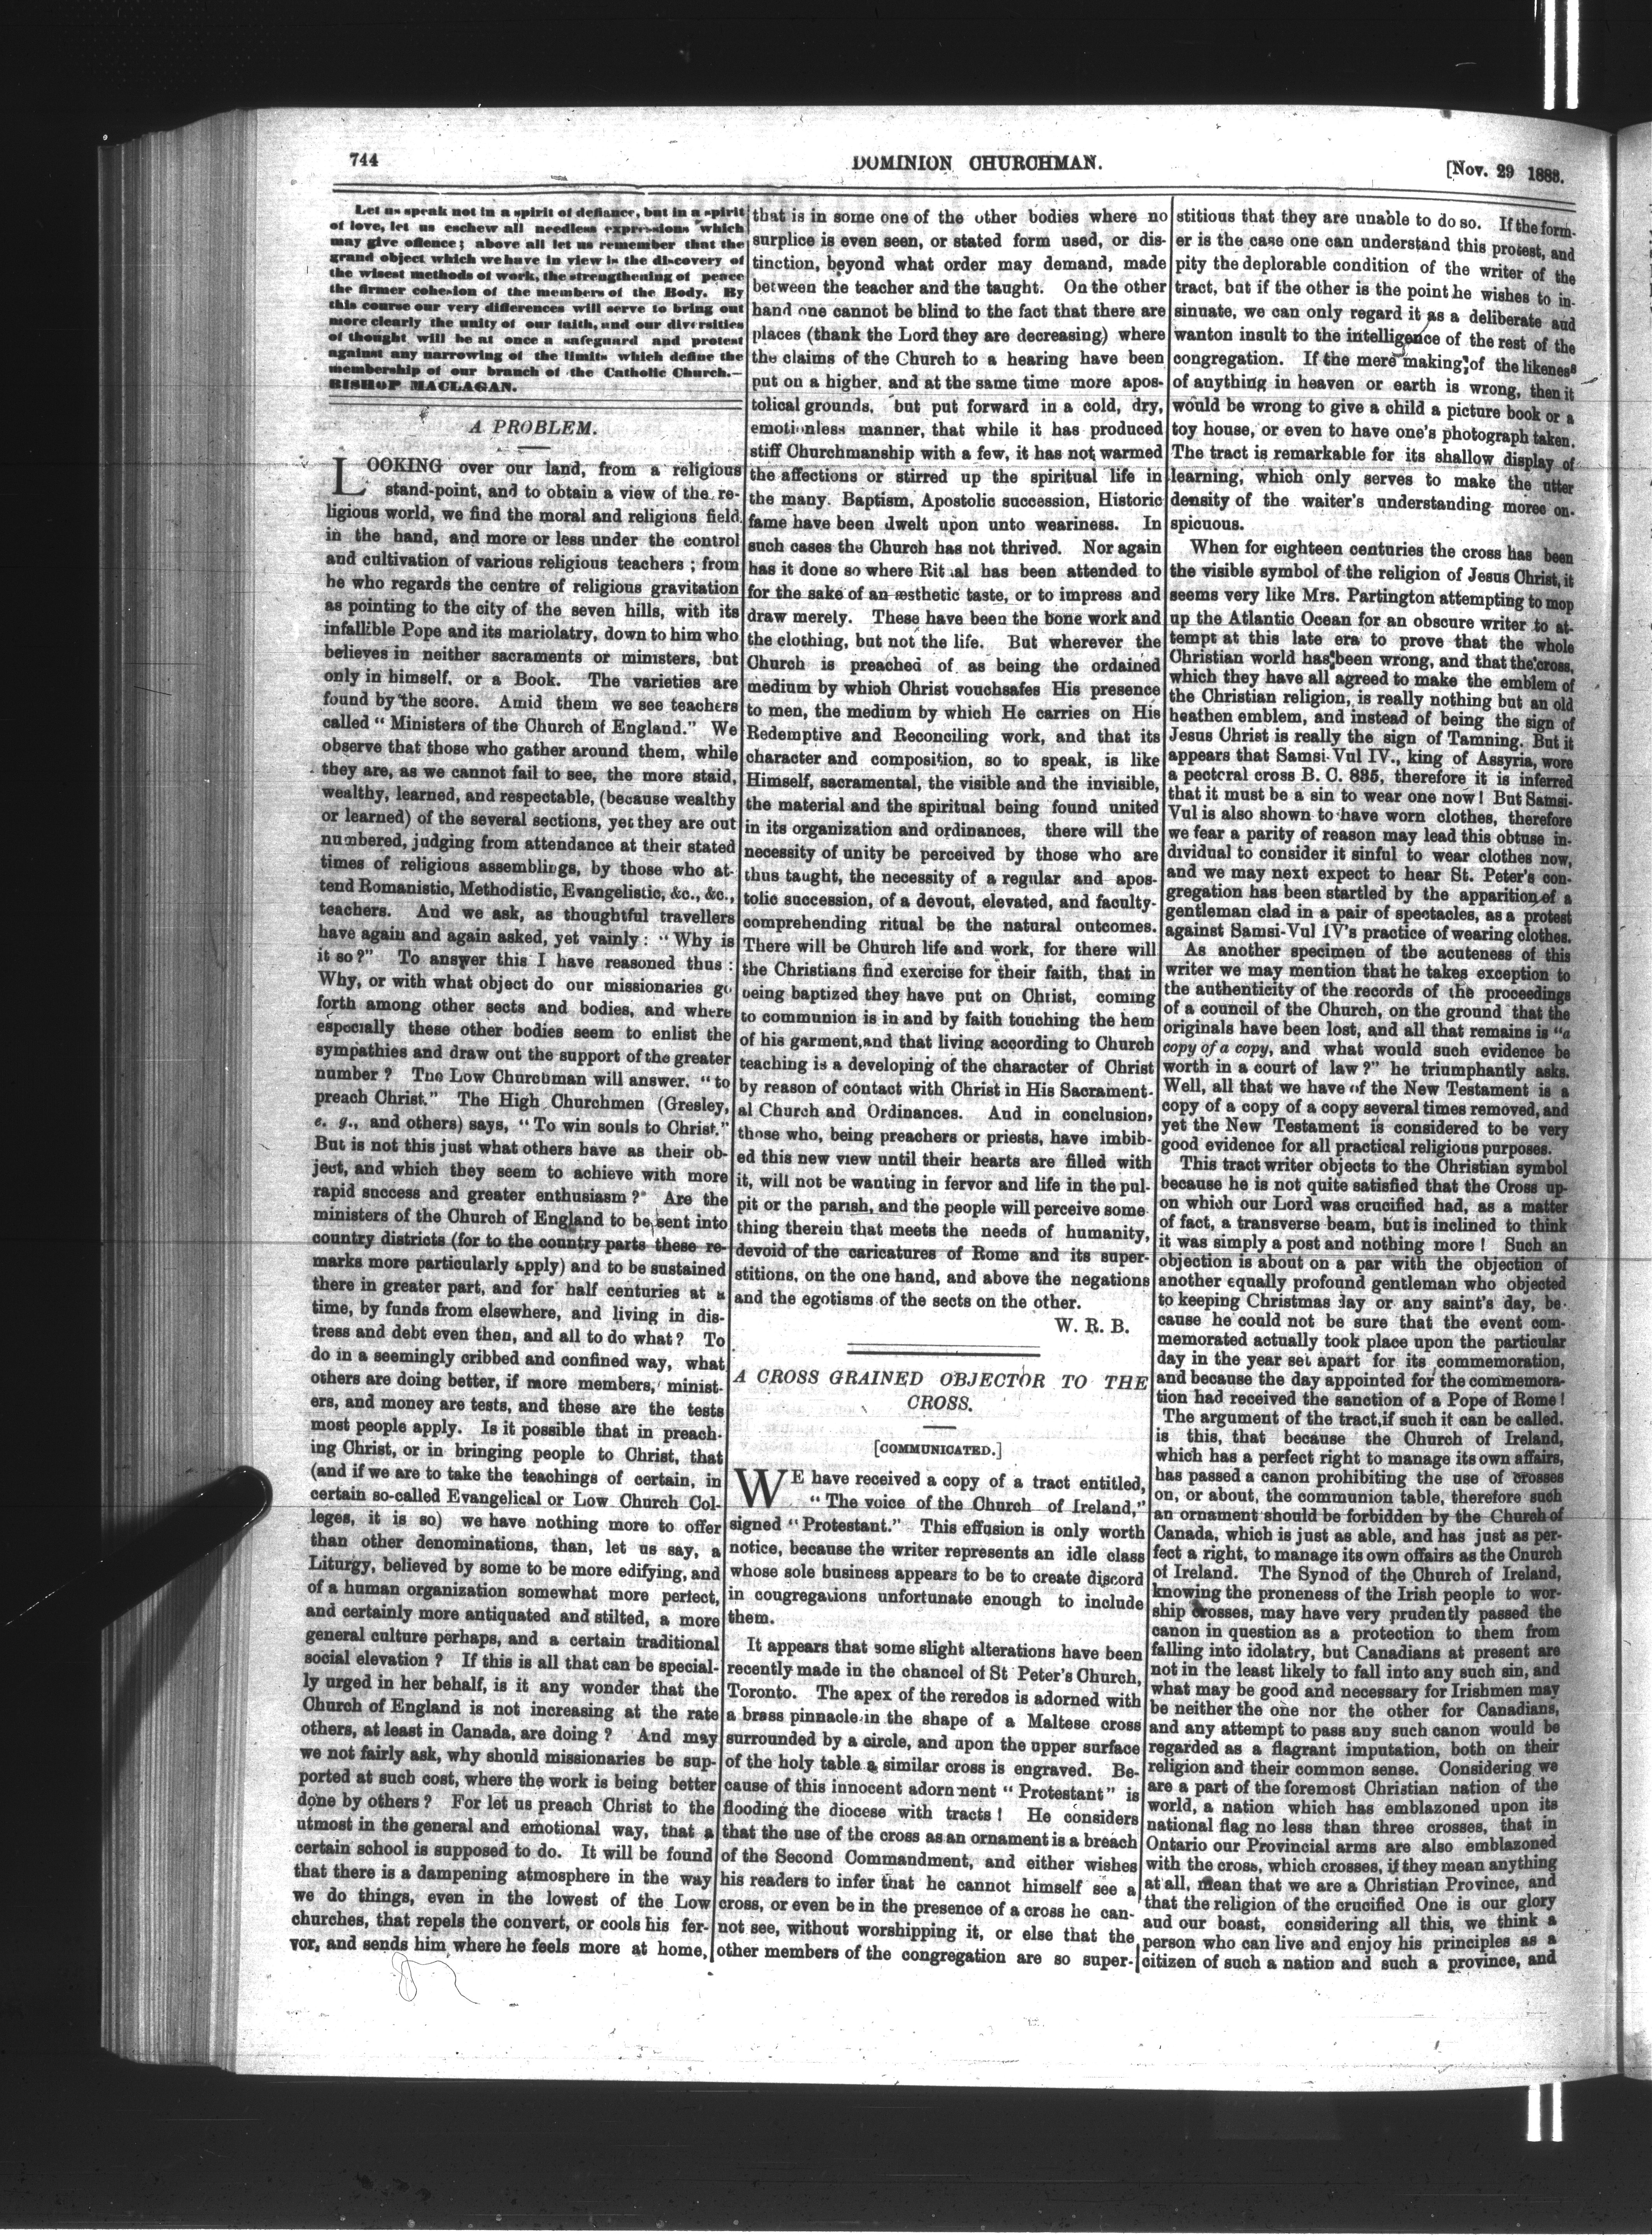 744
DOMINION CHURCHMAN.
[Nov. 29 1883.
Let us speak not in a spirit of defiance, but in a spirit
of love, let us eschew all needless expressions which
may give offence; above all let us remember that the
grand object which we have in view is the discovery of
the wisest methods of work, the strengthening of peace
the firmer cohesion of the members of the Body. By
this course our very differences will serve to bring out
more clearly the unity of our faith, and our diversities
of thought will be at once a safeguard and protest
against any narrowing of the limits which define the
membership of our branch of the Catholic Church.—
BISHOP MACLAGAN.
A PROBLEM.
LOOKING over our land, from a religious
stand-point, and to obtain a view of the re-
ligious world, we find the moral and religious field
in the hand, and more or less under the control
and cultivation of various religious teachers; from
he who regards the centre of religious gravitation
as pointing to the city of the seven hills, with its
infallible Pope and its mariolatry, down to him who
believes in neither sacraments or ministers, but
only in himself, or a Book. The varieties are
found by the score. Amid them we see teachers
called "Ministers of the Church of England." We
observe that those who gather around them, while
they are, as we cannot fail to see, the more staid,
wealthy, learned, and respectable, (because wealthy
or learned) of the several sections, yet they are out
numbered, judging from attendance at their stated
times of religious assemblings, by those who at-
tend Romanistic, Methodistic, Evangelistic, &c., &c.,
teachers. And we ask, as thoughtful travellers
have again and again asked, yet vainly: "Why is
it so?" To answer this I have reasoned thus:
Why, or with what object do our missionaries go
forth among other sects and bodies, and where
especially these other bodies seem to enlist the
sympathies and draw out the support of the greater
number? The Low Churchman will answer, "to
preach Christ." The High Churchmen (Gresley,
e. g., and others) says, "To win souls to Christ."
But is not this just what others have as their ob-
ject, and which they seem to achieve with more
rapid success and greater enthusiasm? Are the
ministers of the Church of England to be sent into
country districts (for to the country parts these re-
marks more particularly apply) and to be sustained
there in greater part, and for half centuries at a
time, by funds from elsewhere, and living in dis-
tress and debt even then, and all to do what? To
do in a seemingly cribbed and confined way, what
others are doing better, if more members, minist-
ers, and money are tests, and these are the tests
most people apply. Is it possible that in preach-
ing Christ, or in bringing people to Christ, that
(and if we are to take the teachings of certain, in
certain so-called Evangelical or Low Church Col-
leges, it is so) we have nothing more to offer
than other denominations, than, let us say, a
Liturgy, believed by some to be more edifying, and
of a human organization somewhat more perfect,
and certainly more antiquated and stilted, a more
general culture perhaps, and a certain traditional
social elevation? If this is all that can be special-
ly urged in her behalf, is it any wonder that the
Church of England is not increasing at the rate
others, at least in Canada, are doing? And may
we not fairly ask, why should missionaries be sup-
ported at such cost, where the work is being better
done by others? For let us preach Christ to the
utmost in the general and emotional way, that a
certain school is supposed to do. It will be found
that there is a dampening atmosphere in the way
we do things, even in the lowest of the Low
churches, that repels the convert, or cools his fer-
vor, and sends him where he feels more at home,
that is in some one of the other bodies where no
surplice is even seen, or stated form used, or dis-
tinction, beyond what order may demand, made
between the teacher and the taught. On the other
hand one cannot be blind to the fact that there are
places (thank the Lord they are decreasing) where
the claims of the Church to a hearing have been
put on a higher, and at the same time more apos-
tolical grounds, but put forward in a cold, dry,
emotionless manner, that while it has produced
stiff Churchmanship with a few, it has not warmed
the affections or stirred up the spiritual life in
the many. Baptism, Apostolic succession, Historic
fame have been dwelt upon unto weariness. In
such cases the Church has not thrived. Nor again
has it done so where Ritual has been attended to
for the sake of an æsthetic taste, or to impress and
draw merely. These have been the bone work and
the clothing, but not the life. But wherever the
Church is preached of as being the ordained
medium by which Christ vouchsafes His presence
to men, the medium by which He carries on His
Redemptive and Reconciling work, and that its
character and composition, so to speak, is like
Himself, sacramental, the visible and the invisible,
the material and the spiritual being found united
in its organization and ordinances, there will the
necessity of unity be perceived by those who are
thus taught, the necessity of a regular and apos-
tolic succession, of a devout, elevated, and faculty-
comprehending ritual be the natural outcomes.
There will be Church life and work, for there will
the Christians find exercise for their faith, that in
being baptized they have put on Christ, coming
to communion is in and by faith touching the hem
of his garment, and that living according to Church
teaching is a developing of the character of Christ
by reason of contact with Christ in His Sacrament-
al Church and Ordinances. And in conclusion,
those who, being preachers or priests, have imbib-
ed this new view until their hearts are filled with
it, will not be wanting in fervor and life in the pul-
pit or the parish, and the people will perceive some
thing therein that meets the needs of humanity,
devoid of the caricatures of Rome and its super-
stitions, on the one hand, and above the negations
and the egotisms of the sects on the other.
W. R. B.
A CROSS GRAINED OBJECTOR TO THE
CROSS.
[COMMUNICATED.]
WE have received a copy of a tract entitled,
"The voice of the Church of Ireland,"
signed "Protestant." This effusion is only worth
notice, because the writer represents an idle class
whose sole business appears to be to create discord
in congregations unfortunate enough to include
them.
It appears that some slight alterations have been
recently made in the chancel of St Peter's Church,
Toronto. The apex of the reredos is adorned with
a brass pinnacle in the shape of a Maltese cross
surrounded by a circle, and upon the upper surface
of the holy table a similar cross is engraved. Be-
cause of this innocent adornment "Protestant" is
flooding the diocese with tracts! He considers
that the use of the cross as an ornament is a breach
of the Second Commandment, and either wishes
his readers to infer that he cannot himself see a
cross, or even be in the presence of a cross he can-
not see, without worshipping it, or else that the
other members of the congregation are so super-
stitious that they are unable to do so. If the form-
er is the case one can understand this protest, and
pity the deplorable condition of the writer of the
tract, but if the other is the point he wishes to in-
sinuate, we can only regard it as a deliberate and
wanton insult to the intelligence of the rest of the
congregation. If the mere making of the likeness
of anything in heaven or earth is wrong, then it
would be wrong to give a child a picture book or a
toy house, or even to have one's photograph taken.
The tract is remarkable for its shallow display of
learning, which only serves to make the utter
density of the waiter's understanding moree on-
spicuous.
When for eighteen centuries the cross has been
the visible symbol of the religion of Jesus Christ, it
seems very like Mrs. Partington attempting to mop
up the Atlantic Ocean for an obscure writer to at-
tempt at this late era to prove that the whole
Christian world has been wrong, and that the cross,
which they have all agreed to make the emblem of
the Christian religion, is really nothing but an old
heathen emblem, and instead of being the sign of
Jesus Christ is really the sign of Tamning. But it
appears that Samsi-Vul IV., king of Assyria, wore
a pectoral cross B. C. 835, therefore it is inferred
that it must be a sin to wear one now! But Samsi-
Vul is also shown to have worn clothes, therefore
we fear a parity of reason may lead this obtuse in-
dividual to consider it sinful to wear clothes now,
and we may next expect to hear St. Peter's con-
gregation has been startled by the apparition of a
gentleman clad in a pair of spectacles, as a protest
against Samsi-Vul IV's practice of wearing clothes.
As another specimen of the acuteness of this
writer we may mention that he takes exception to
the authenticity of the records of the proceedings
of a council of the Church, on the ground that the
originals have been lost, and all that remains is "a
copy of a copy, and what would such evidence be
worth in a court of law?" he triumphantly asks.
Well, all that we have of the New Testament is a
copy of a copy of a copy several times removed, and
yet the New Testament is considered to be very
good evidence for all practical religious purposes.
This tract writer objects to the Christian symbol
because he is not quite satisfied that the Cross up-
on which our Lord was crucified had, as a matter
of fact, a transverse beam, but is inclined to think
it was simply a post and nothing more! Such an
objection is about on a par with the objection of
another equally profound gentleman who objected
to keeping Christmas day or any saint's day, be-
cause he could not be sure that the event com-
memorated actually took place upon the particular
day in the year set apart for its commemoration,
and because the day appointed for the commemora-
tion had received the sanction of a Pope of Rome!
The argument of the tract, if such it can be called,
is this, that because the Church of Ireland,
which has a perfect right to manage its own affairs,
has passed a canon prohibiting the use of crosses
on, or about, the communion table, therefore such
an ornament should be forbidden by the Church of
Canada, which is just as able, and has just as per-
fect a right, to manage its own offairs as the Church
of Ireland. The Synod of the Church of Ireland,
knowing the proneness of the Irish people to wor-
ship crosses, may have very prudently passed the
canon in question as a protection to them from
falling into idolatry, but Canadians at present are
not in the least likely to fall into any such sin, and
what may be good and necessary for Irishmen may
be neither the one nor the other for Canadians,
and any attempt to pass any such canon would be
regarded as a flagrant imputation, both on their
religion and their common sense. Considering we
are a part of the foremost Christian nation of the
world, a nation which has emblazoned upon its
national flag no less than three crosses, that in
Ontario our Provincial arms are also emblazoned
with the cross, which crosses, if they mean anything
at all, mean that we are a Christian Province, and
that the religion of the crucified One is our glory
and our boast, considering all this, we think a
person who can live and enjoy his principles as a
citizen of such a nation and such a province, and